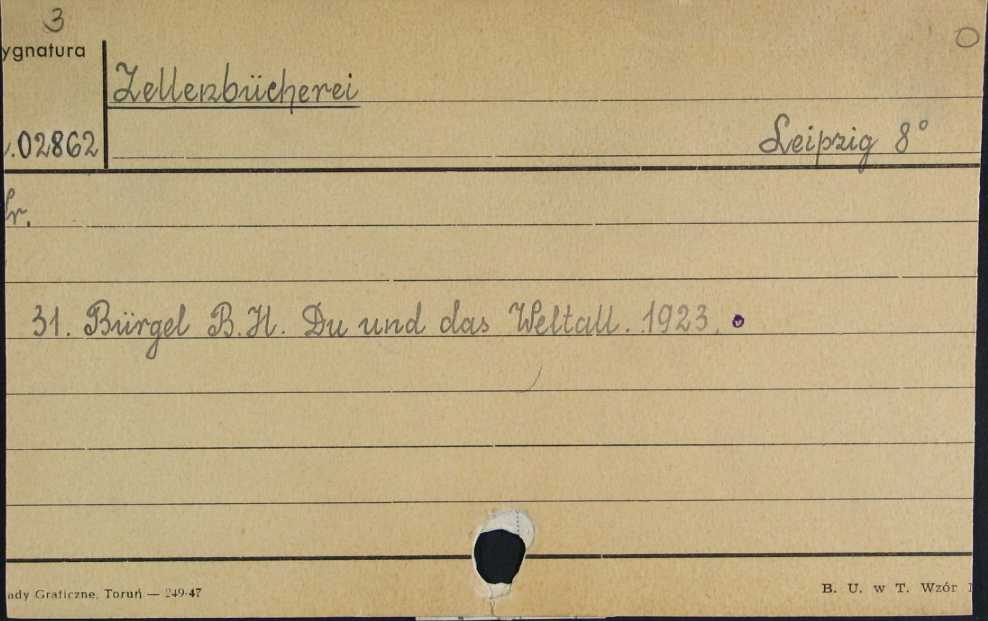 3
ygnatura
Zellenbücherei
.02862
Leipzig 8°
r.
31. Bürgel B.H. Du und das Weltall. 1923.
ady Graficzne, Toruń — 249-47
B. U. w T. Wzór